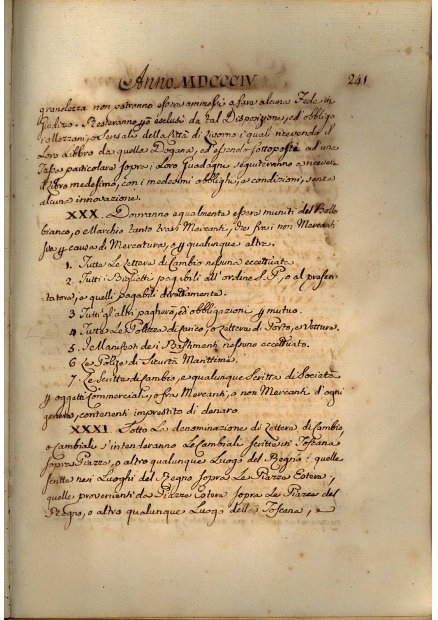 Anno MDCCCIV. 241
grandezza non potranno essere ammessi a fare alcuna Fede in
Giudizio. Resteranno però esclusi da tal Disposizione, ed obbligo
i Mezzani, o Sensali della Città di Livorno i quali ricevendo il
Loro Libbro da quella Dogana, ed essendo sottoposti ad una
Tassa particolare sopra i Loro Guadagni seguiteranno a ricevere
il Libro medesimo, con i medesimi obblighi, e condizioni, senza
alcuna innovazione.
XXX. Dovranno egualmente essere muniti del Bollo
bianco, o Marchio tanto fra i Mercanti, che fra i non Mercanti
per causa di Mercatura, o per qualunque altra.
1. Tutte Le Lettere di Cambio nessuna eccettuata.
2. Tutti i Biglietti pagabili all'ordine S. P., o al presen-
tatore, e quelli pagabili direttamente.
3 Tutti gl'altri pagherò, ed obbligazioni per mutuo.
4. Tutte Le Polizze di Carico, o Lettere di Porto, e Vettura.
5. I Manifesti dei Bastimenti nessuno eccettuato.
6 Le Polize di Sicurtà Marittime.
7. Le Scritte di Cambio, e qualunque Scritta di Società
per oggetti Commerciali, o fra Mercanti, o non Mercanti d'ogni
genere, contenenti imprestito di denaro
XXXI. Sotto La denominazione di Lettere di Cambio,
o Cambiali s'intenderanno Le Cambiali scritte in Toscana
sopra Piazze, o altro qualunque Luogo del Regno: quelle
scritte nei Luoghi del Regno sopra Le Piazze Estere,
quelle provenienti da Piazze Estere sopra Le Piazze del
Regno, o altro qualunque Luogo della Toscana, e